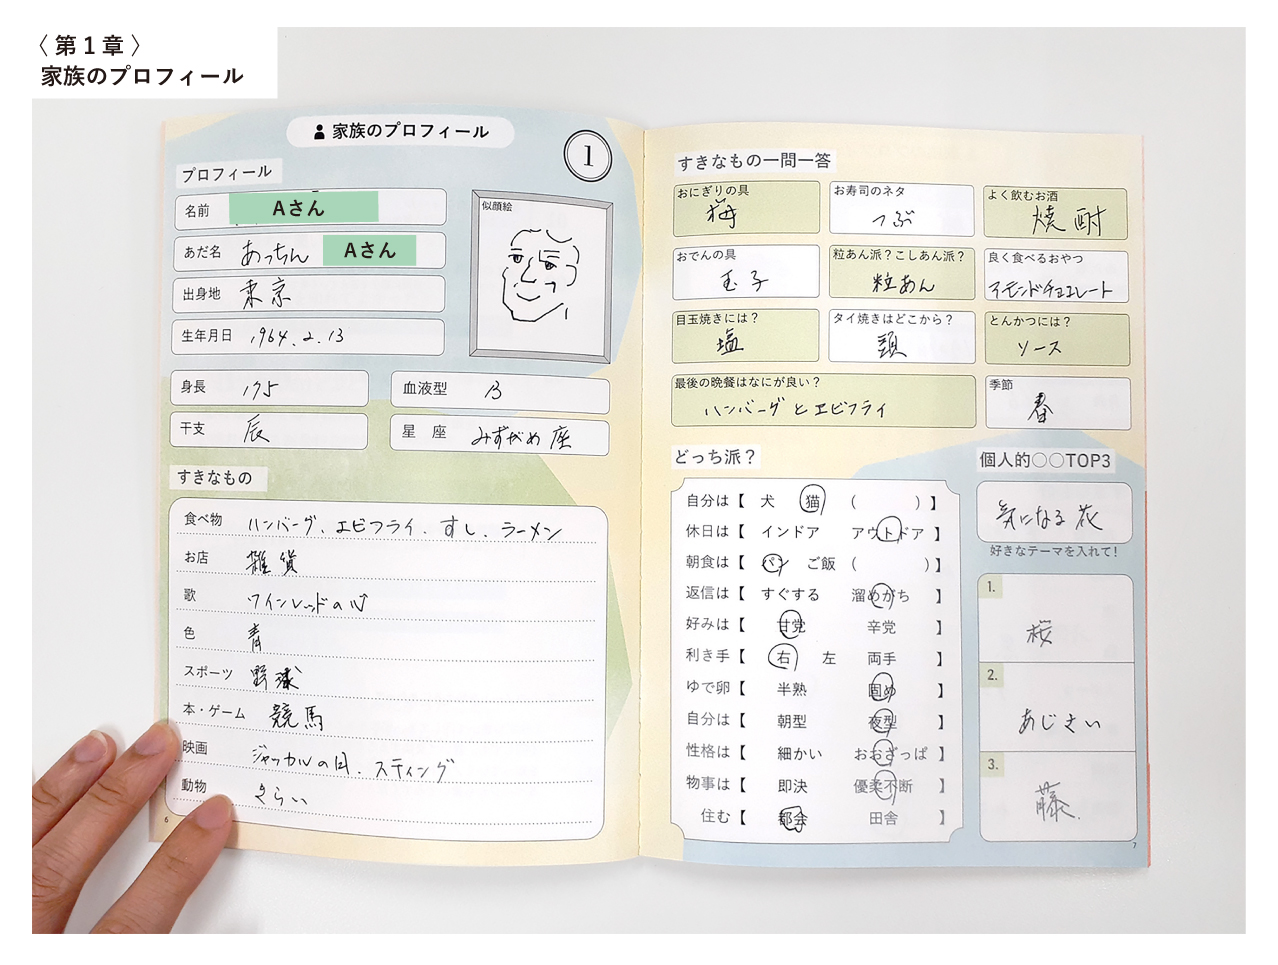 〈 第1章 〉
家族のプロフィール
家族のプロフィール
1
プロフィール
名前 Aさん
あだ名 あっちん Aさん
出身地 東京
生年月日 1964.2.13
似顔絵
身長 175
血液型 B
干支 辰
星座 みずがめ座
すきなもの
食べ物 ハンバーグ、エビフライ、すし、ラーメン
お店 雑貨
歌 ワインレッドの心
色 青
スポーツ 野球
本・ゲーム 競馬
映画 ジャッカルの日、スティング
動物 きらい
6
すきなもの一問一答
おにぎりの具 梅
お寿司のネタ つぶ
よく飲むお酒 焼酎
おでんの具 玉子
粒あん派?こしあん派? 粒あん
良く食べるおやつ アーモンドチョコレート
目玉焼きには? 塩
タイ焼きはどこから? 頭
とんかつには? ソース
最後の晩餐はなにが良い? ハンバーグとエビフライ
季節 春
どっち派?
自分は【 犬 猫 ( ) 】
休日は【 インドア アウトドア 】
朝食は【 パン ご飯 ( ) 】
返信は【 すぐする 溜めがち 】
好みは【 甘党 辛党 】
利き手【 右 左 両手 】
ゆで卵【 半熟 固め 】
自分は【 朝型 夜型 】
性格は【 細かい おおざっぱ 】
物事は【 即決 優柔不断 】
住む【 都会 田舎 】
個人的○○TOP3
気になる花
好きなテーマを入れて!
1. 桜
2. あじさい
3. 藤.
7